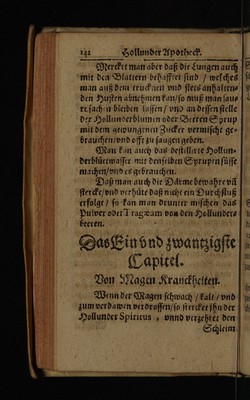 142 Hollunder Apotheck.
Mercket man aber daß die Lungen auch
mit den Blattern behafftet sind / welches
man auß dem trucknen und stets anhalten-
den Husten abnehmen kan / so muß man
sachen bleiben lassen / und an dessen stelle
der Hollunderblumen oder Beeren Syrup
mit dem gezwungenen Zucker vermischt ge-
brauchen / und offt zu saugen geben.
Man kan auch das destillirte Hollun-
derblüetwasser mit denselben Syrupen süsse
machen / und es gebrauchen.
Daß man auch die Därme bewahre uñ
stercke / und verhüte daß nicht ein Durchfluß
erfolge / so kan man drunter mischen das
Pulver oder Tragwam von den Hollunders
beeren.
Das Ein und zwantzigste
Capitel.
Von Magen Kranckheiten.
Wenn der Magen schwach / kalt / und
zum verdawen verdrossen / so stercket jhn der
Hollunder Spiritus , unnd verzehret den
Schleim